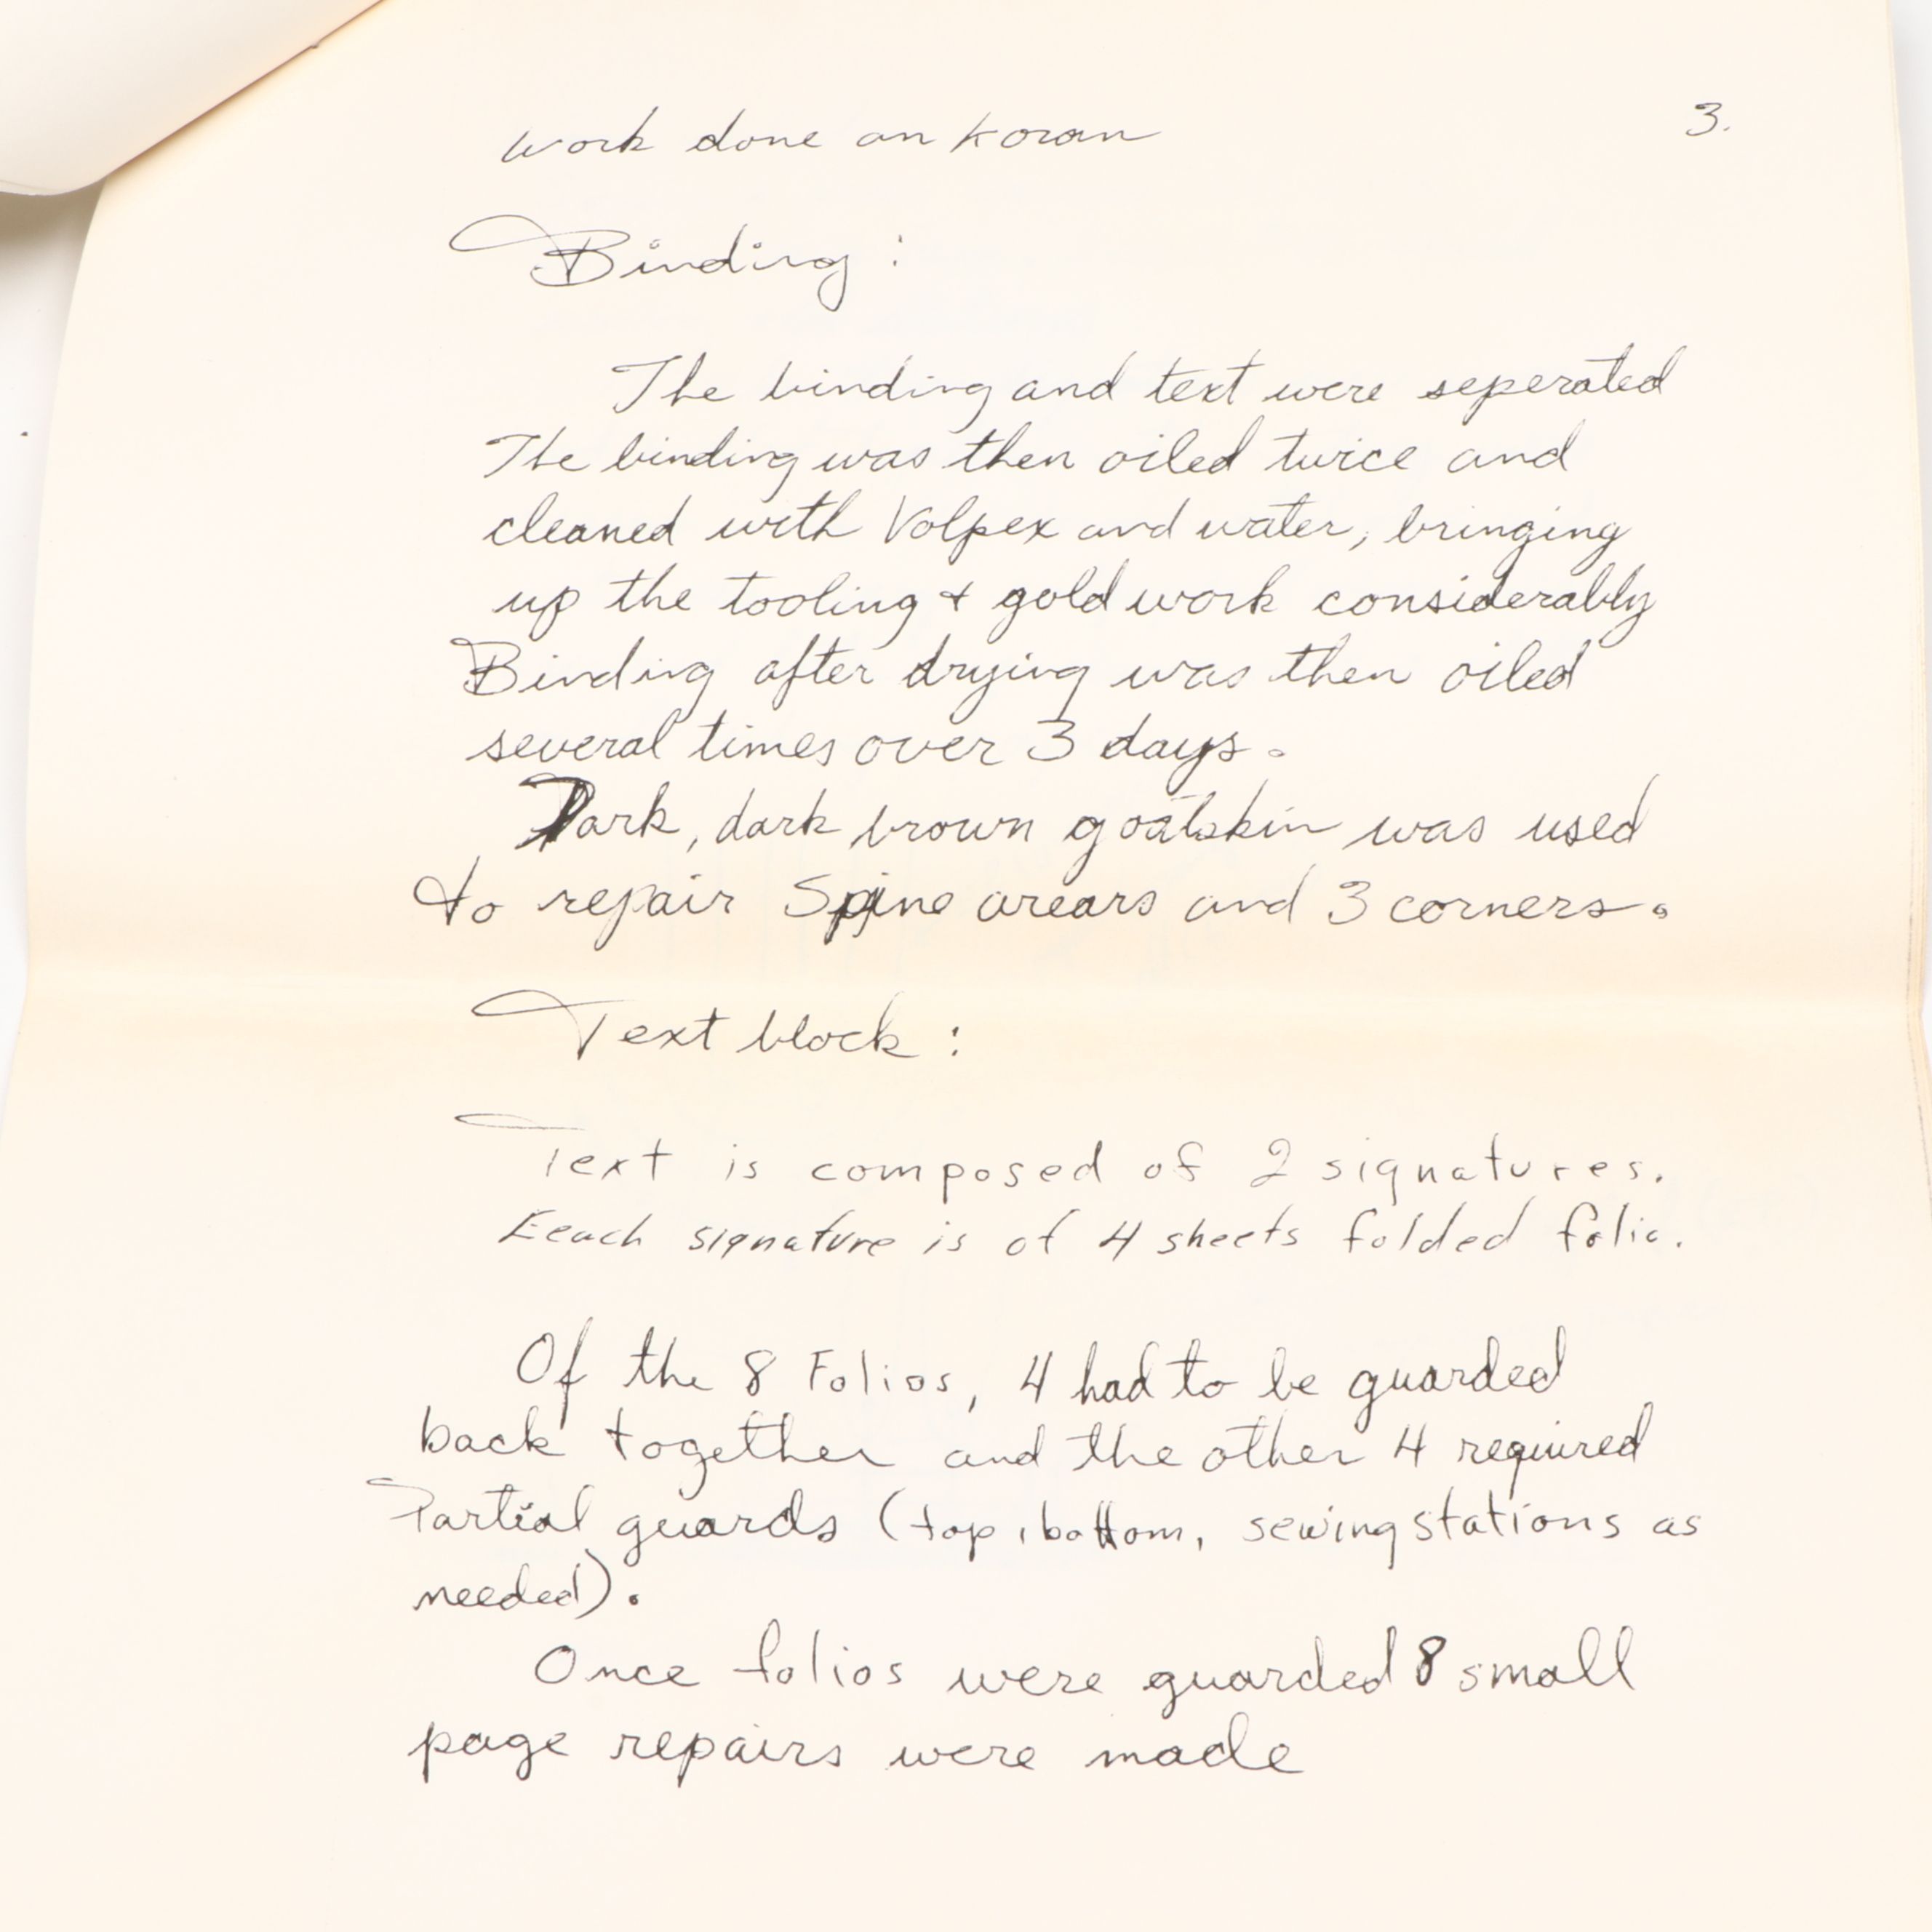 work done on Koran
3.
Binding:
The binding and text were seperated
The binding was then oiled twice and
cleaned with Volpex and water, bringing
up the tooling + gold work considerably
Binding after drying was then oiled
several times over 3 days.
Dark, dark brown goatskin was used
to repair Spine arears and 3 corners.
Text block:
Text is composed of 2 signatures.
Eeach signature is of 4 sheets folded folio.
Of the 8 Folios, 4 had to be guarded
back together and the other 4 required
Partial guards (top, bottom, sewing stations as
needed).
Once folios were guarded 8 small
page repairs were made